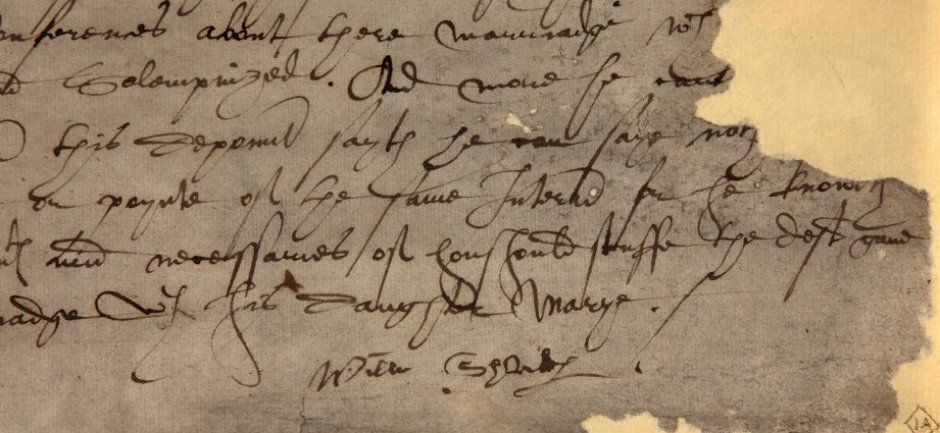 onferences about there marriadge wth
nd Solempnized. And more he cann
this deponnt sayth he can saye noth
or poynte of the same Interr for he knoweth
necessaries of houshould stuffe the deft gave
adge wth his daughter Marye.
Willm Shaks
1A